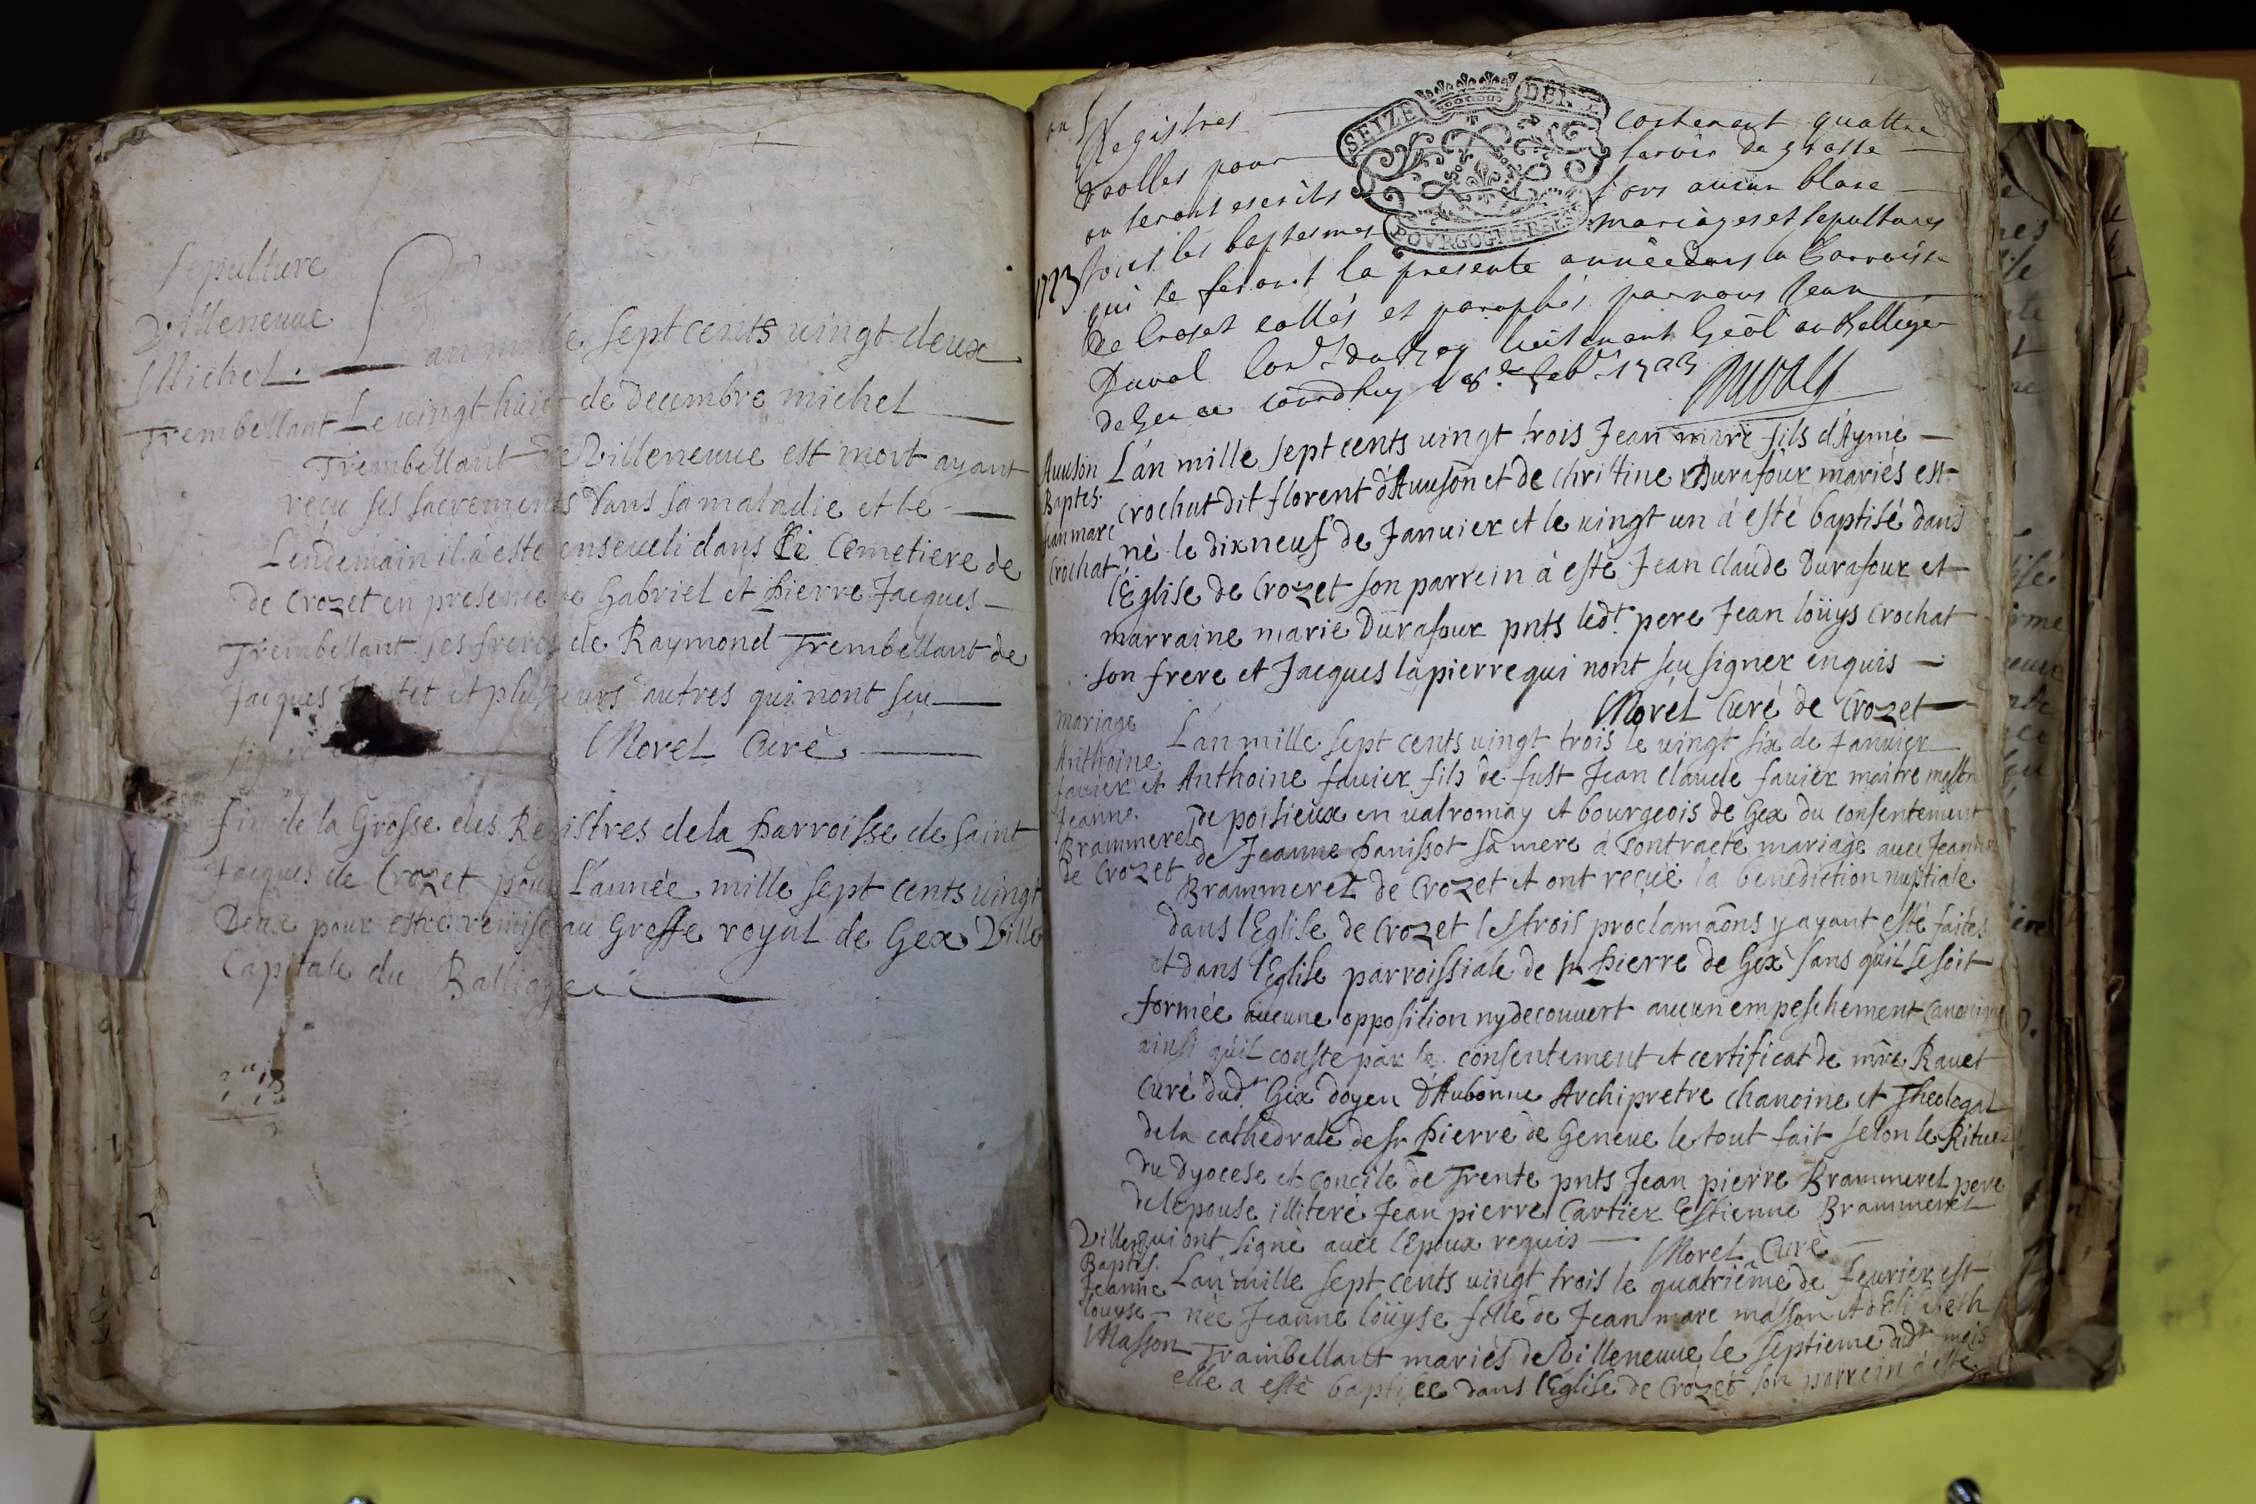 Sepulture
Villeneuue
Michel
Trembellant
an mille sept cents uingt deux
Le uingt huict de decembre michel
Trembellant de Villeneuue est mort ayant
reçu ses sacrements dans sa maladie et le
Lendemain il á esté enseueli dans le Cemetiere de
de Crozet en presence de Gabriel et Pierre Jacques
Trembellant ses freres de Raymond Trembellant de
Jacques et plusieurs autres qui nont sçu
signer
Morel Curé
fin de la Grosse des Registres de la Parroisse de Saint
Jacques de Crozet pour L'année mille sept cents uingt
Deux pour estre remise au Greffe royal de Gex Ville
Capitale du Balliage
1723
Registres contenant quattre
roolles pour seruir de grosse
ou seront escrits sans aucun blanc
tous les baptesmes mariages et sepultures
SEIZE DEN
BOVRGOGNE
qui se feront la presente année dans la Parroisse
de Crozet collés et paraphés par nous Jean
Duval Con.r du Roy lieutenant Geñl au Balliage
de Gex ce jourdhuy 8.e feb. 1723
Duval
Auuson
Baptes.
Jean marc
Crochat
L'an mille sept cents uingt trois Jean marc fils d'Aymé
Crochat dit florent d'Auuson et de christine Durafour mariés est
né le dixneuf de Januier et le uingt un á esté baptisé dans
l'Eglise de Crozet son parrein á esté Jean Claude Durafour et
marraine marie Durafour pnts led.t pere Jean loüys Crochat
son frere et Jacques lapierre qui nont sçu signer enquis
Morel Curé de Crozet
Mariage
Anthoine
fauier et
Jeanne
Brammerel
de Crozet
L'an mille sept cents uingt trois le uingt six de Januier
Anthoine fauier fils de fust Jean Claude fauier maitre masson
de poisieux en ualromay et bourgeois de Gex du consentement
de Jeanne Panissot sa mere á contracté mariage auec Jeanne
Brammerel de Crozet et ont reçue la benediction nuptiale
dans l'Eglise de Crozet les trois proclamaõns y ayant esté faites
et dans l'Eglise parroissiale de st Pierre de Gex sans qu'il se soit
formée aucune opposition ny decouuert aucun empeschement Canonique
ainsi qu'il conste par le consentement et certificat de mre Rauet
Curé dud.t Gex doyen d'Aubonne Archipretre chanoine et Theologal
de la cathedrale de st Pierre de Geneue le tout fait selon le Rituel
du dyocese et concile de Trente pnts Jean pierre Brammerel pere
de lepouse illiteré Jean pierre Cartier Estienne Brammerel
qui ont signé auec l'Epoux requis
Morel Curé
Villen
Baptes.
Jeanne
louyse
Masson
L'an mille sept cents uingt trois le quatriême de feurier est
née Jeanne loüyse fille de Jean marc masson et
Trambellant mariés de Villeneuue le septieme dud.t mois
elle a esté baptisée dans l'Eglise de Crozet son parrein á esté